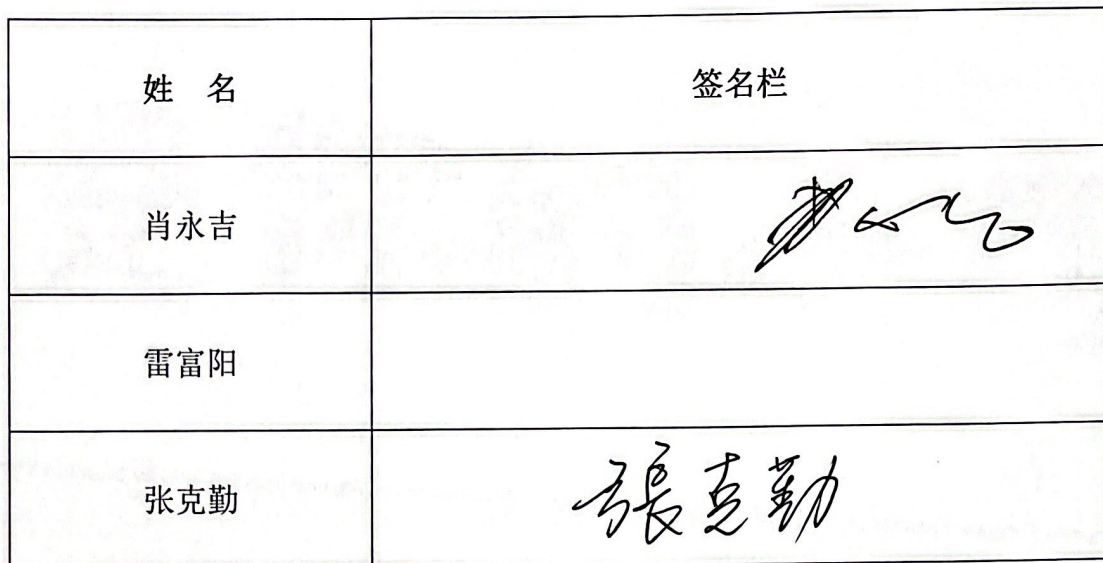 姓 名 签名栏
肖永吉
雷富阳
张克勤 張克勤